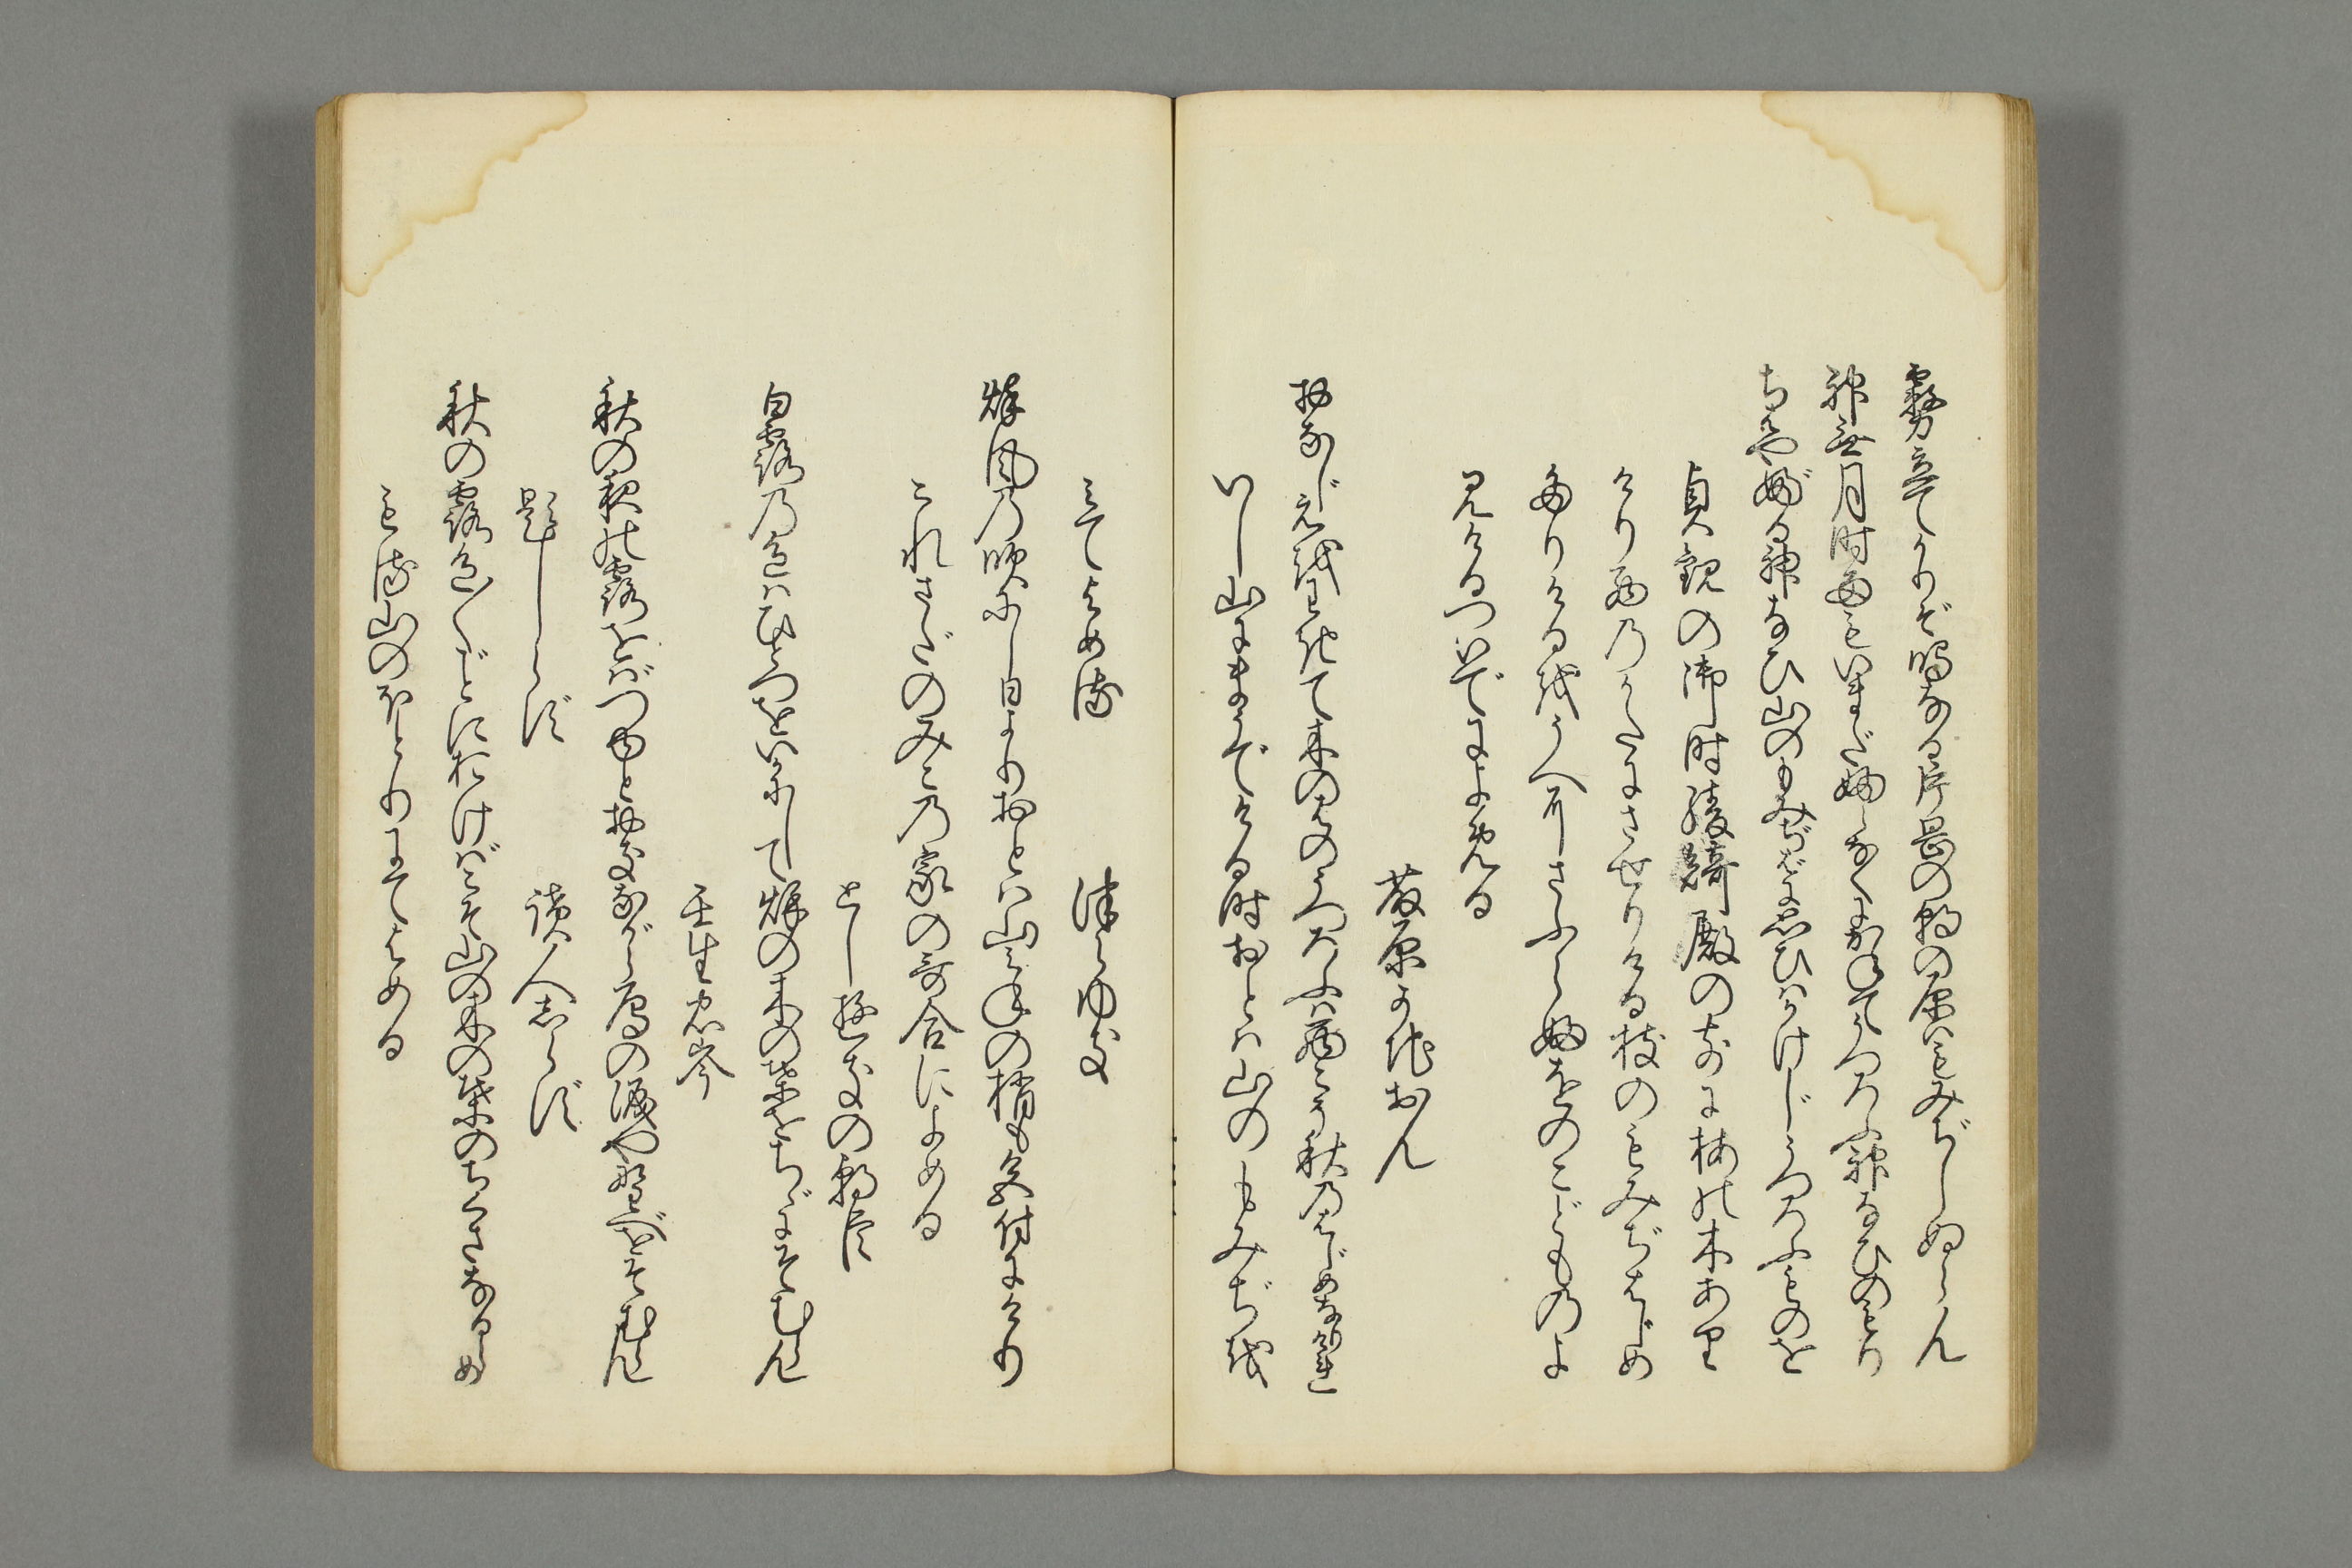 霧立てかりぞ鳴なる片岡の朝の原はもみぢしぬらん
神無月時雨もいまだ降なくにかねてうつろふ神なびのもり
ちはやぶる神なひ山のもみぢばに思ひはかけじうつろふものを
貞観の御時綾綺殿の前に梅の木あり
けり西のかたにさせりける枝のもみぢはじめ
たりけるをうへにさふらふをのこどものよ
見けるついでによめる
藤原かちおん
おなじえをわきて木のはのうつろふは西こそ秋のはじめなりけれ
いし山にまうでける時おとは山のもみぢを
みてよめる
つらゆき
秋風の吹にし日よりおとは山みねの梢も色付にけり
これさだのみこの家の哥合によめる
とし行の朝臣
白露の色はひとつをいかにして秋の木の葉をちゞにそむらん
壬生忠岑
秋の夜の露をばつゆとおきながら雁の涙や野べをそむらん
題しらず
読人志らず
秋の露色〳〵ごとにおけばこそ山の木の葉のちくさなるらめ
もる山のほとりにてよめる